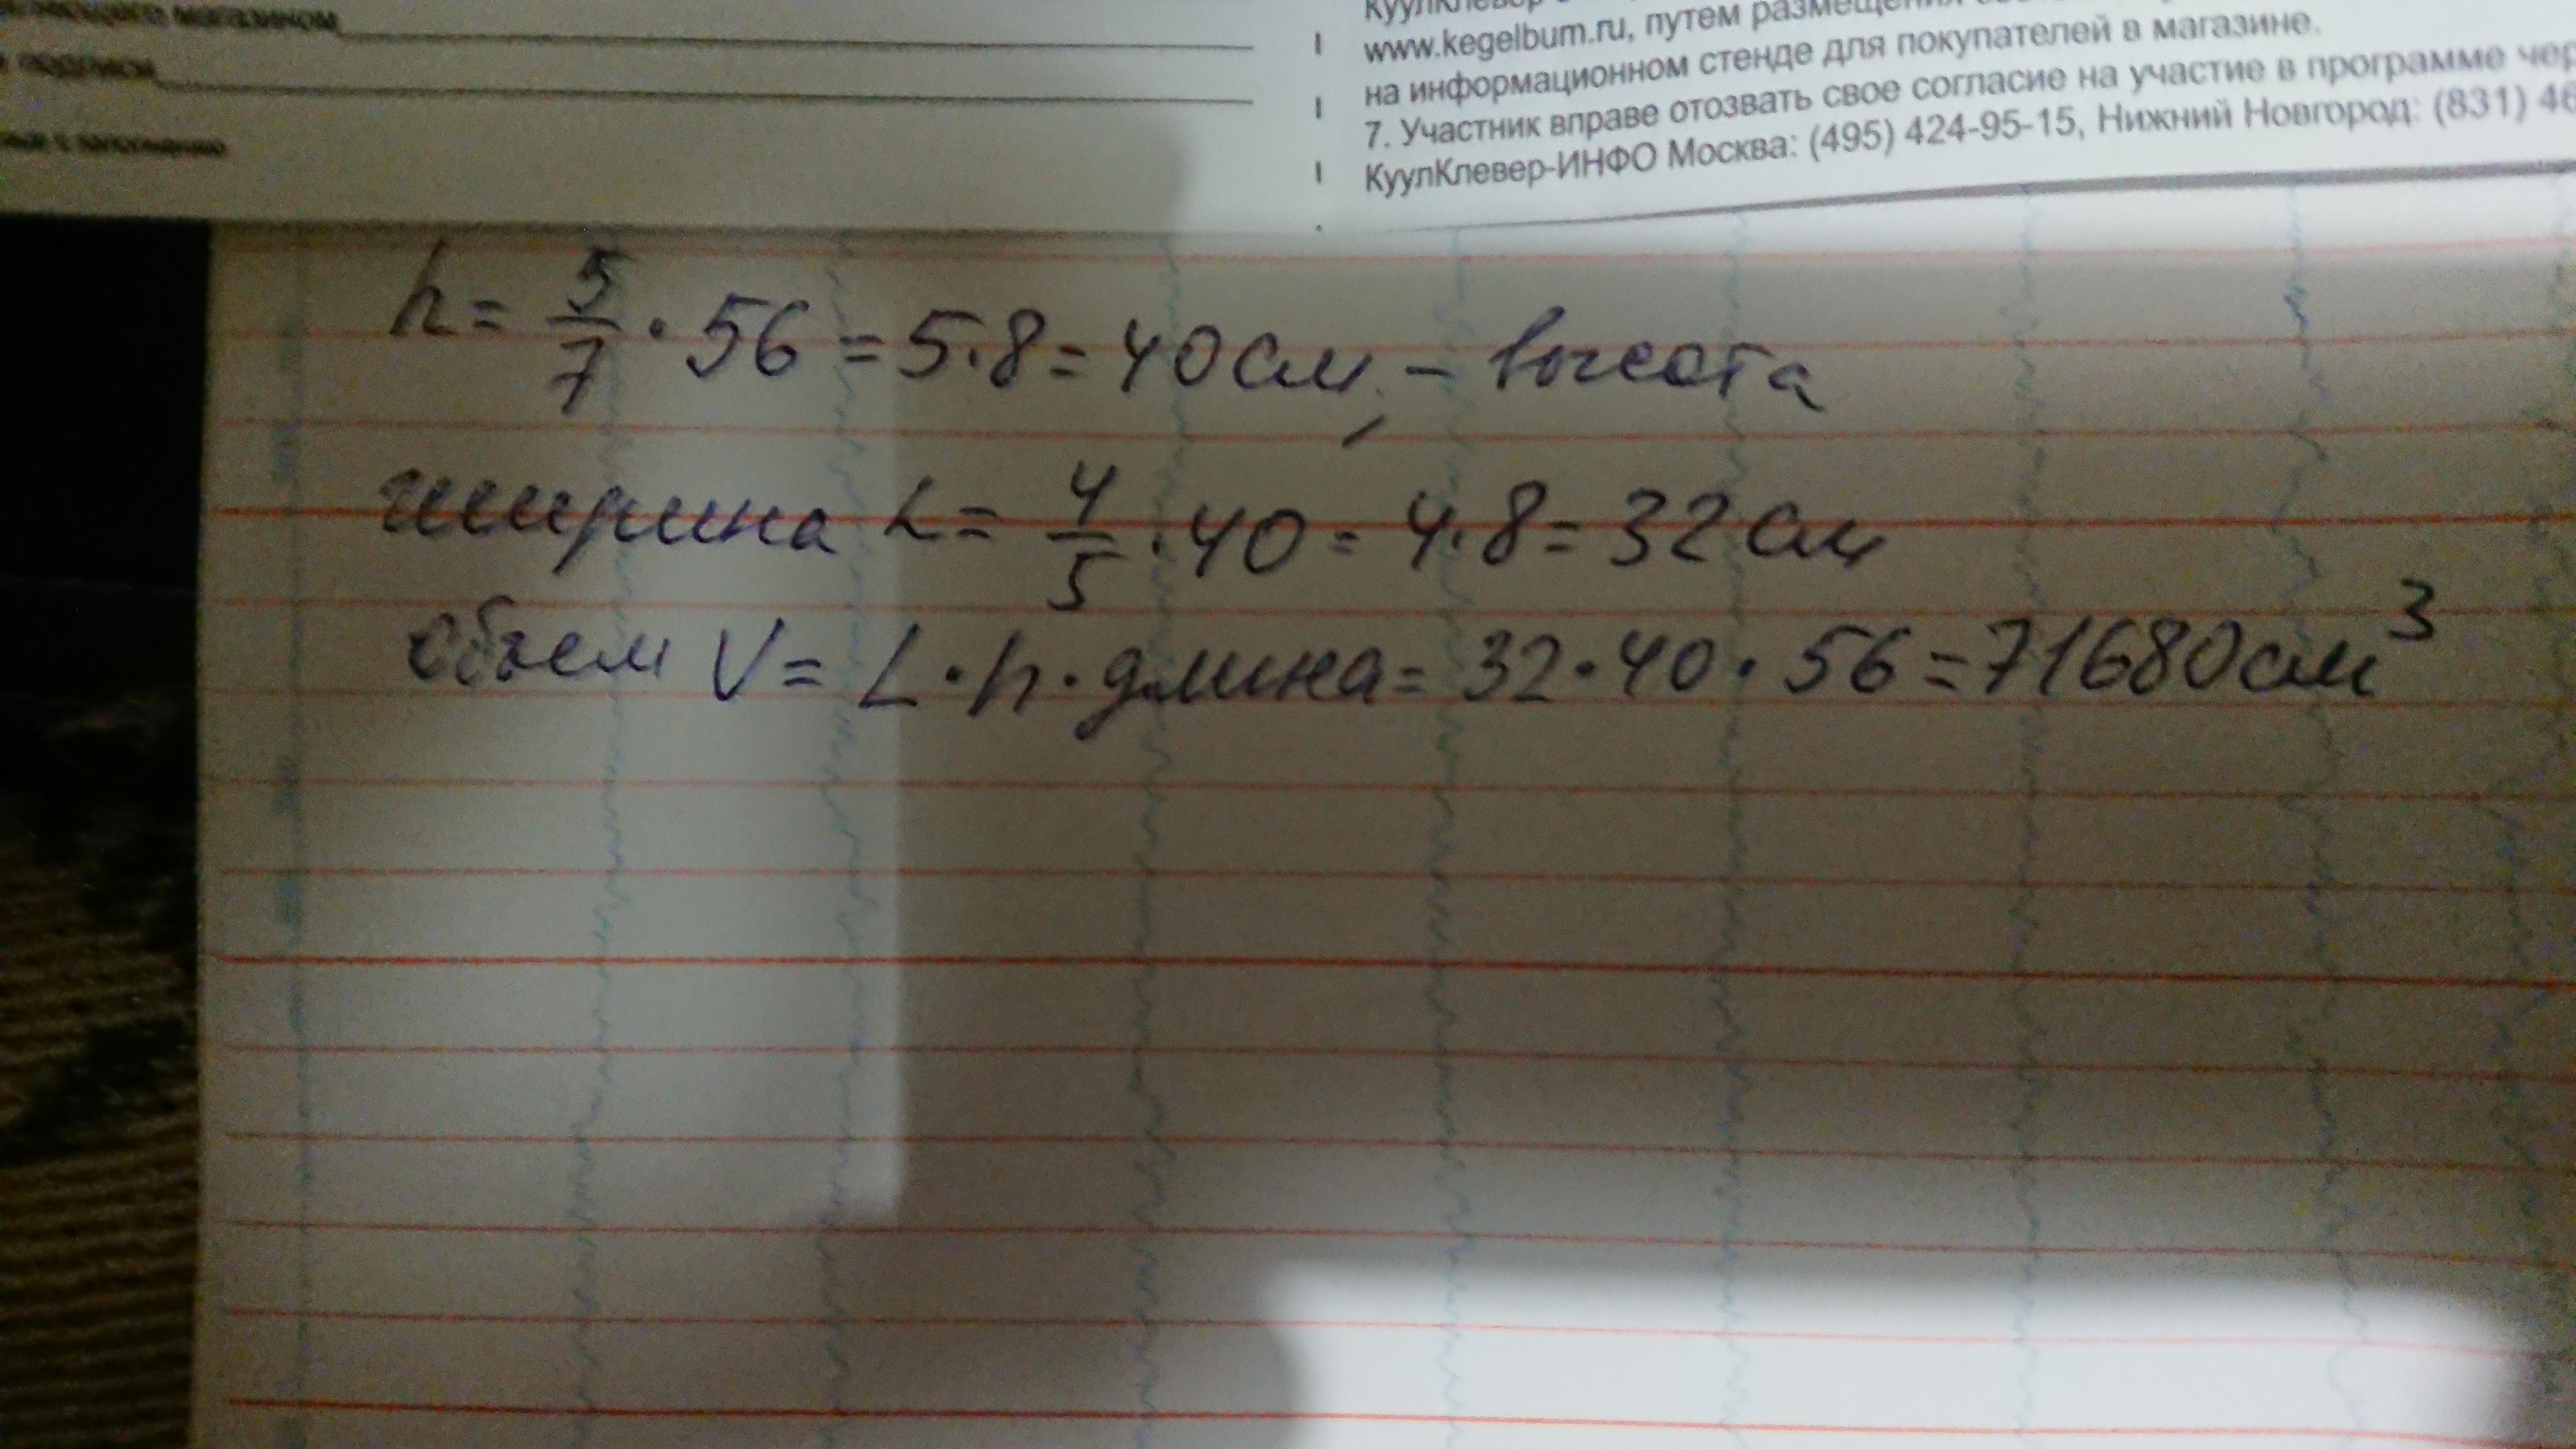 магазином
www.kegelbum.ru, путем размещения
на информационном стенде для покупателей в магазине.
7. Участник вправе отозвать свое согласие на участие в программе
КуулКлевер-ИНФО Москва: (495) 424-95-15, Нижний Новгород: (831) 46
h = 5/7 · 56 = 5·8 = 40 см, – высота
ширина L = 4/5 · 40 = 4·8 = 32 см
объем V = L · h · длина = 32 · 40 · 56 = 71680 см³